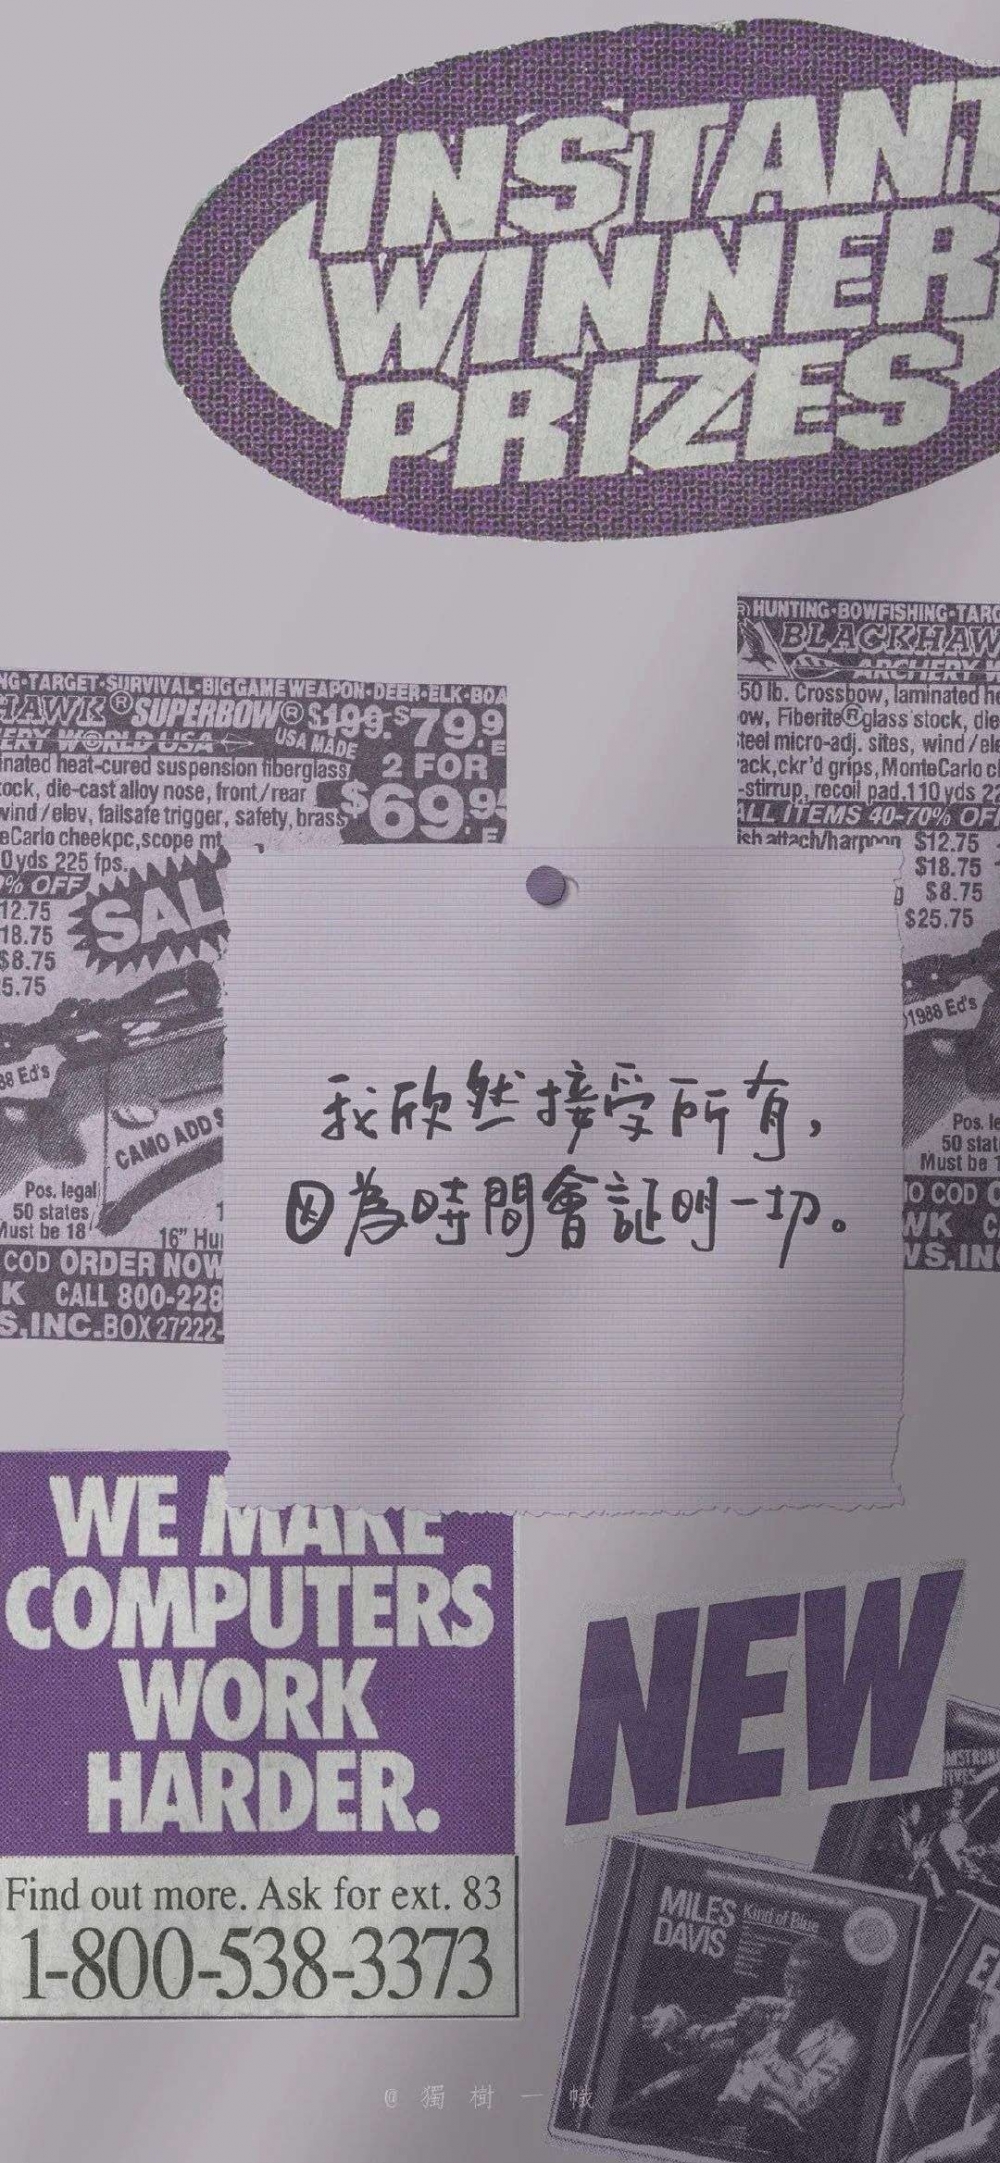 INSTANT
WINNER
PRIZES
HUNTING·BOWFISHING·TARG
BLACKHAW
ARCHERY W
50 lb. Crossbow, laminated he
ow, Fiberite® glass stock, die
teel micro-adj. sites, wind/ele
ack,ckr'd grips,MonteCarlo ch
-stirrup, recoil pad.110 yds 22
ALL ITEMS 40-70% OFF
sh attach/harpoon $12.75
$18.75
g $8.75
$25.75
1988 Ed's
Pos. le
50 stat
Must be 1
NO COD O
WK C
WS,INC
NG·TARGET·SURVIVAL·BIG GAME WEAPON·DEER·ELK·BOA
HAWK® SUPERBOW® $199. $79.9
ERY WORLD USA USA MADE
2 FOR
$69.95
inated heat-cured suspension fiberglass
ock, die-cast alloy nose, front/rear
wind/elev, failsafe trigger, safety, brass
eCarlo cheekpc,scope mt
0 yds 225 fps.
% OFF
SAL
12.75
18.75
$8.75
5.75
88 Ed's
CAMO ADD $
Pos. legal
50 states
Must be 18
16" Hu
COD ORDER NOW
K CALL 800-228
S,INC.BOX 27222-
我欣然接受所有，
因為時間會証明一切。
WE MAKE
COMPUTERS
WORK
HARDER.
Find out more. Ask for ext. 83
1-800-538-3373
NEW
MILES
DAVIS
Kind of Blue
@獨樹一幟